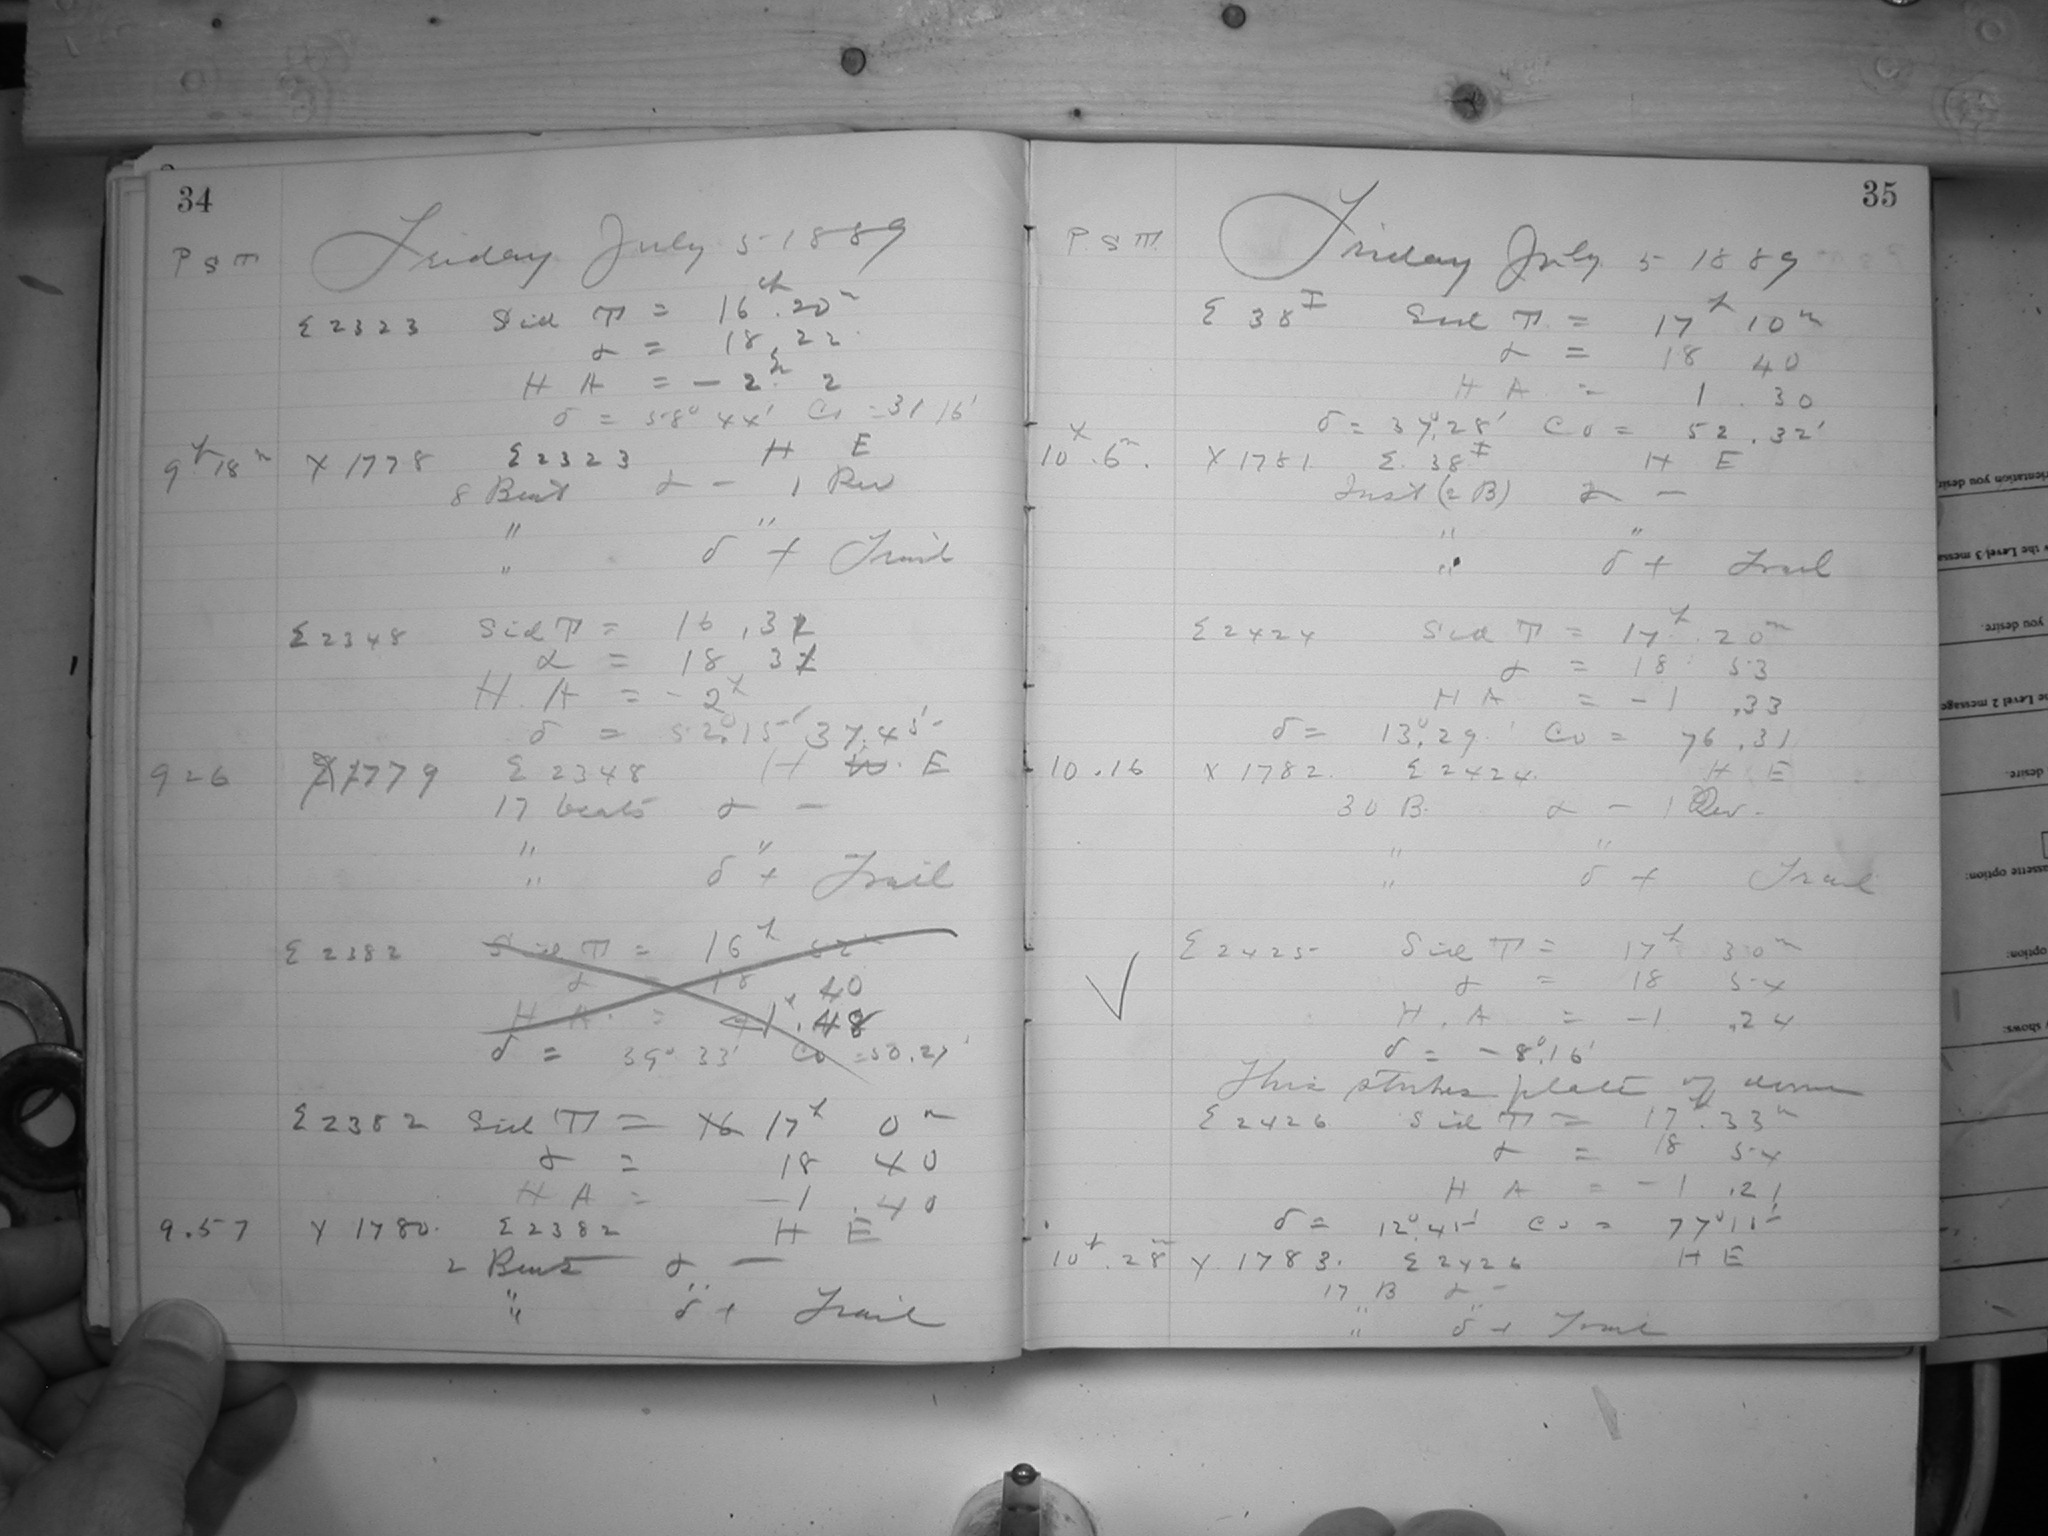 34
P S T Friday July 5 1889
Σ 2323 Sid T = 16h. 20m
α = 18. 22
H A = - 2h. 2
δ = 58° 44' Co = 31 16'
9h 18m X 1778 Σ 2323 H E
8 Beat α - 1 Rev
" "
" δ + Trail
Σ 2348 Sid T = 16 . 32
α = 18 32
H. A = - 2h
δ = 52° 15' 37. 45'
9 26 X 1779 Σ 2348 H W. E
17 beats α -
" "
" δ + Trail
Σ 2382 Sid T = 16h 52m
α = 18 40
H A. = -1h. 48
δ = 39° 33' Co = 50. 27'
Σ 2382 Sid T = 16 17h 0m
α = 18 40
H A = -1 . 40
9. 57 X 1780. Σ 2382 H E
2 Beats α -
" "
" δ + Trail
35
P. S T. Friday July 5 1889
Σ 38I Sid T. = 17h 10m
α = 18 40
H A = 1 . 30
δ = 37°. 28' Co = 52 . 32'
10h. 6m. X 1781 Σ. 38I H E
Inst (2 B) α -
" "
" δ + Trail
Σ 2424 Sid T = 17h. 20m
α = 18 53
H A = - 1 . 33
δ = 13°. 29' Co = 76 . 31
10 . 16 X 1782. Σ 2424. H E
30 B. α - 1 Rev.
" "
" δ + Trail
Σ 2425 Sid T = 17h 30m
α = 18 54
H. A = -1 . 24
δ = - 8°. 16'
This strikes plate of dome
Σ 2426 Sid T = 17h. 33m
α = 18 54
H A = - 1 . 21
δ = 12°. 45' Co = 77° 15'
10h. 28m X 1783. Σ 2426 H E
17 B α -
" "
" δ + Trail